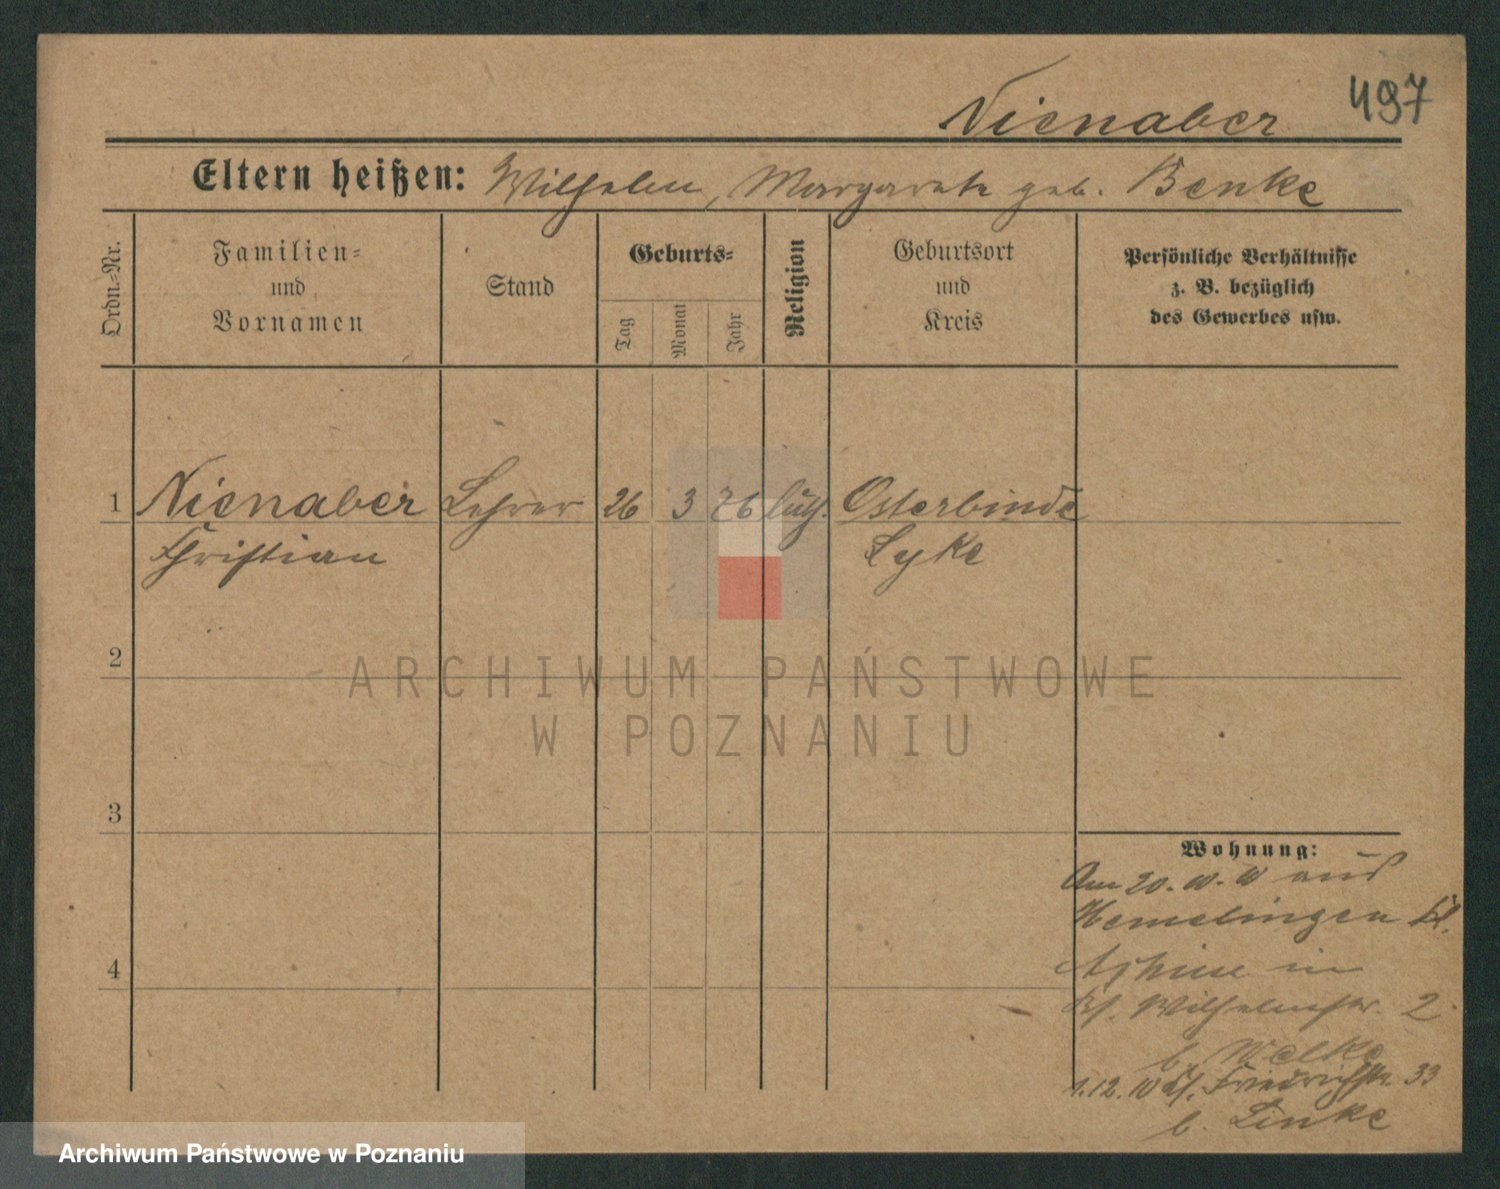 Nienaber 497
Eltern heißen: Wilhelm, Margarete geb. Benke
Ordn.-Nr.
Familien-
und
Vornamen
Stand
Geburts-
Tag
Monat
Jahr
Religion
Geburtsort
und
Kreis
Persönliche Verhältnisse
z. B. bezüglich
des Gewerbes usw.
1 Nienaber Lehrer 26 3 76 luth. Osterbinde
Christian Syke
2
ARCHIWUM PAŃSTWOWE
W POZNANIU
3
4
Wohnung:
Am 20. 10. 10 aus
Hemelingen
in
Wilhelmstr. 2
b. Welke
1.12.10 Friedrichstr. 33
b. Linke
Archiwum Państwowe w Poznaniu